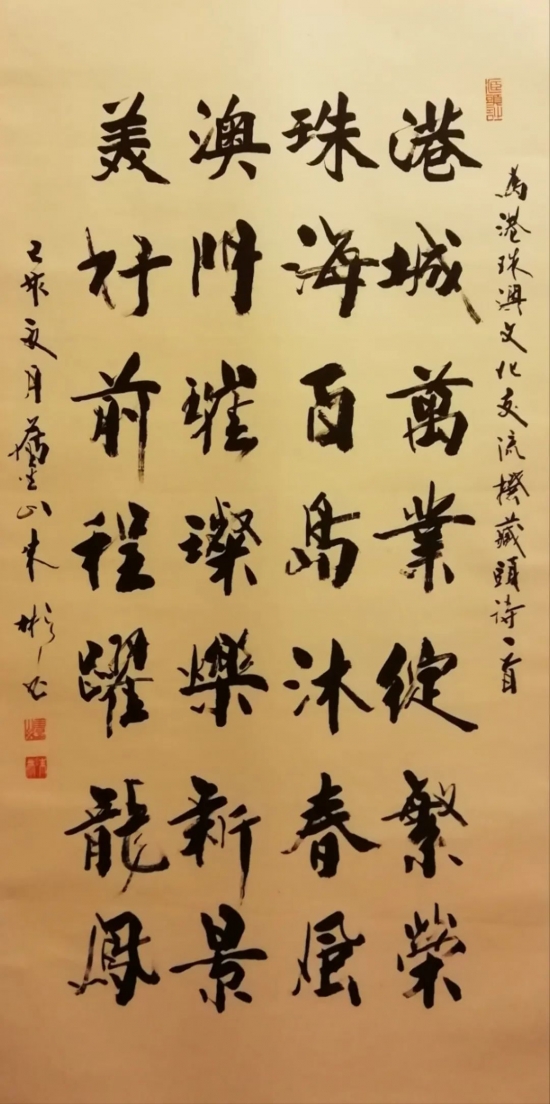 為港珠澳文化交流撰藏頭詩一首
港城萬業綻繁榮
珠海百島沐春風
澳門璀璨爍新景
美好前程躍龍鳳
己亥夏月舊金山朱彬書